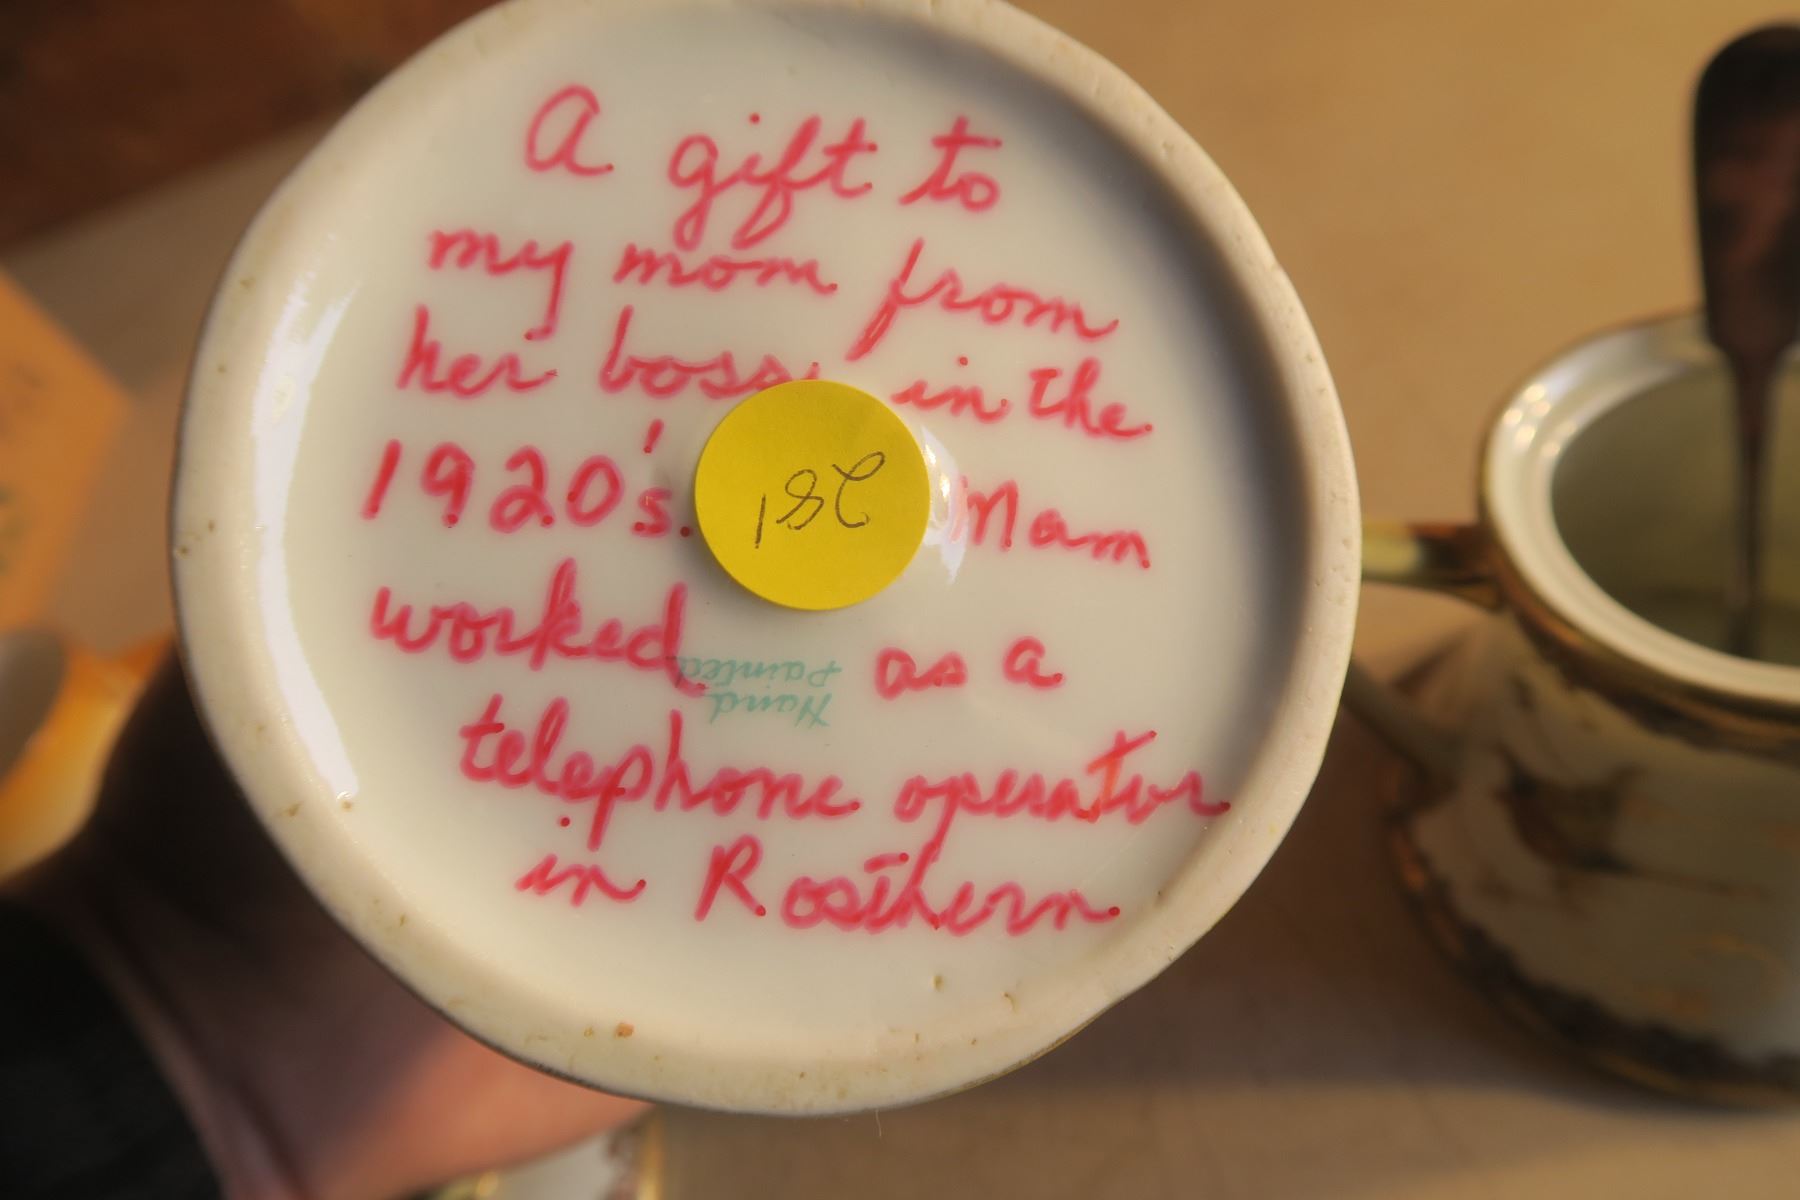 A gift to
my mom from
her boss in the
1920's. Mom
worked as a
telephone operator
in Rosthern
281
Hand
Painted